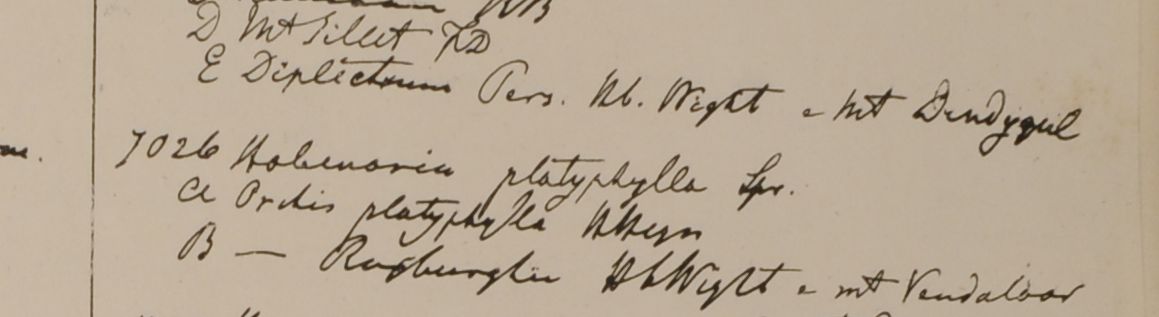 HB
D Mt Sillet FD
E Diplectrum Pers. Hb. Wight e Mt Dindygul
7026 Habenaria platyphylla Spr.
a Orchis platyphylla HHeyn
B — Roxburghii HbWight e mt Vendaloor